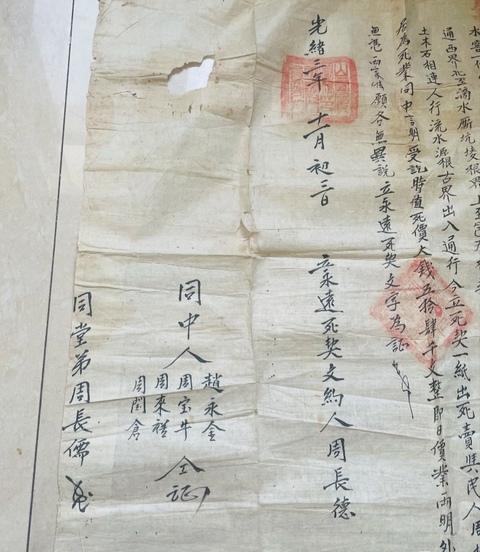 水窖一
通西界北至滴水廝坑棱根界上至
土木石相連人行流水源根古界出入通行今立死契一紙出死賣與民人周
為死業同中言明受訖時值死價大錢五拾肆千文整即日價業両明
無憑両家情願各無異說立永遠死契文字為証
光緒三年十一月初三日 立永遠死契文約人周長德
同中人
趙永金
周宝牛
周來禧
周閏倉
仝証
同堂弟周長儒